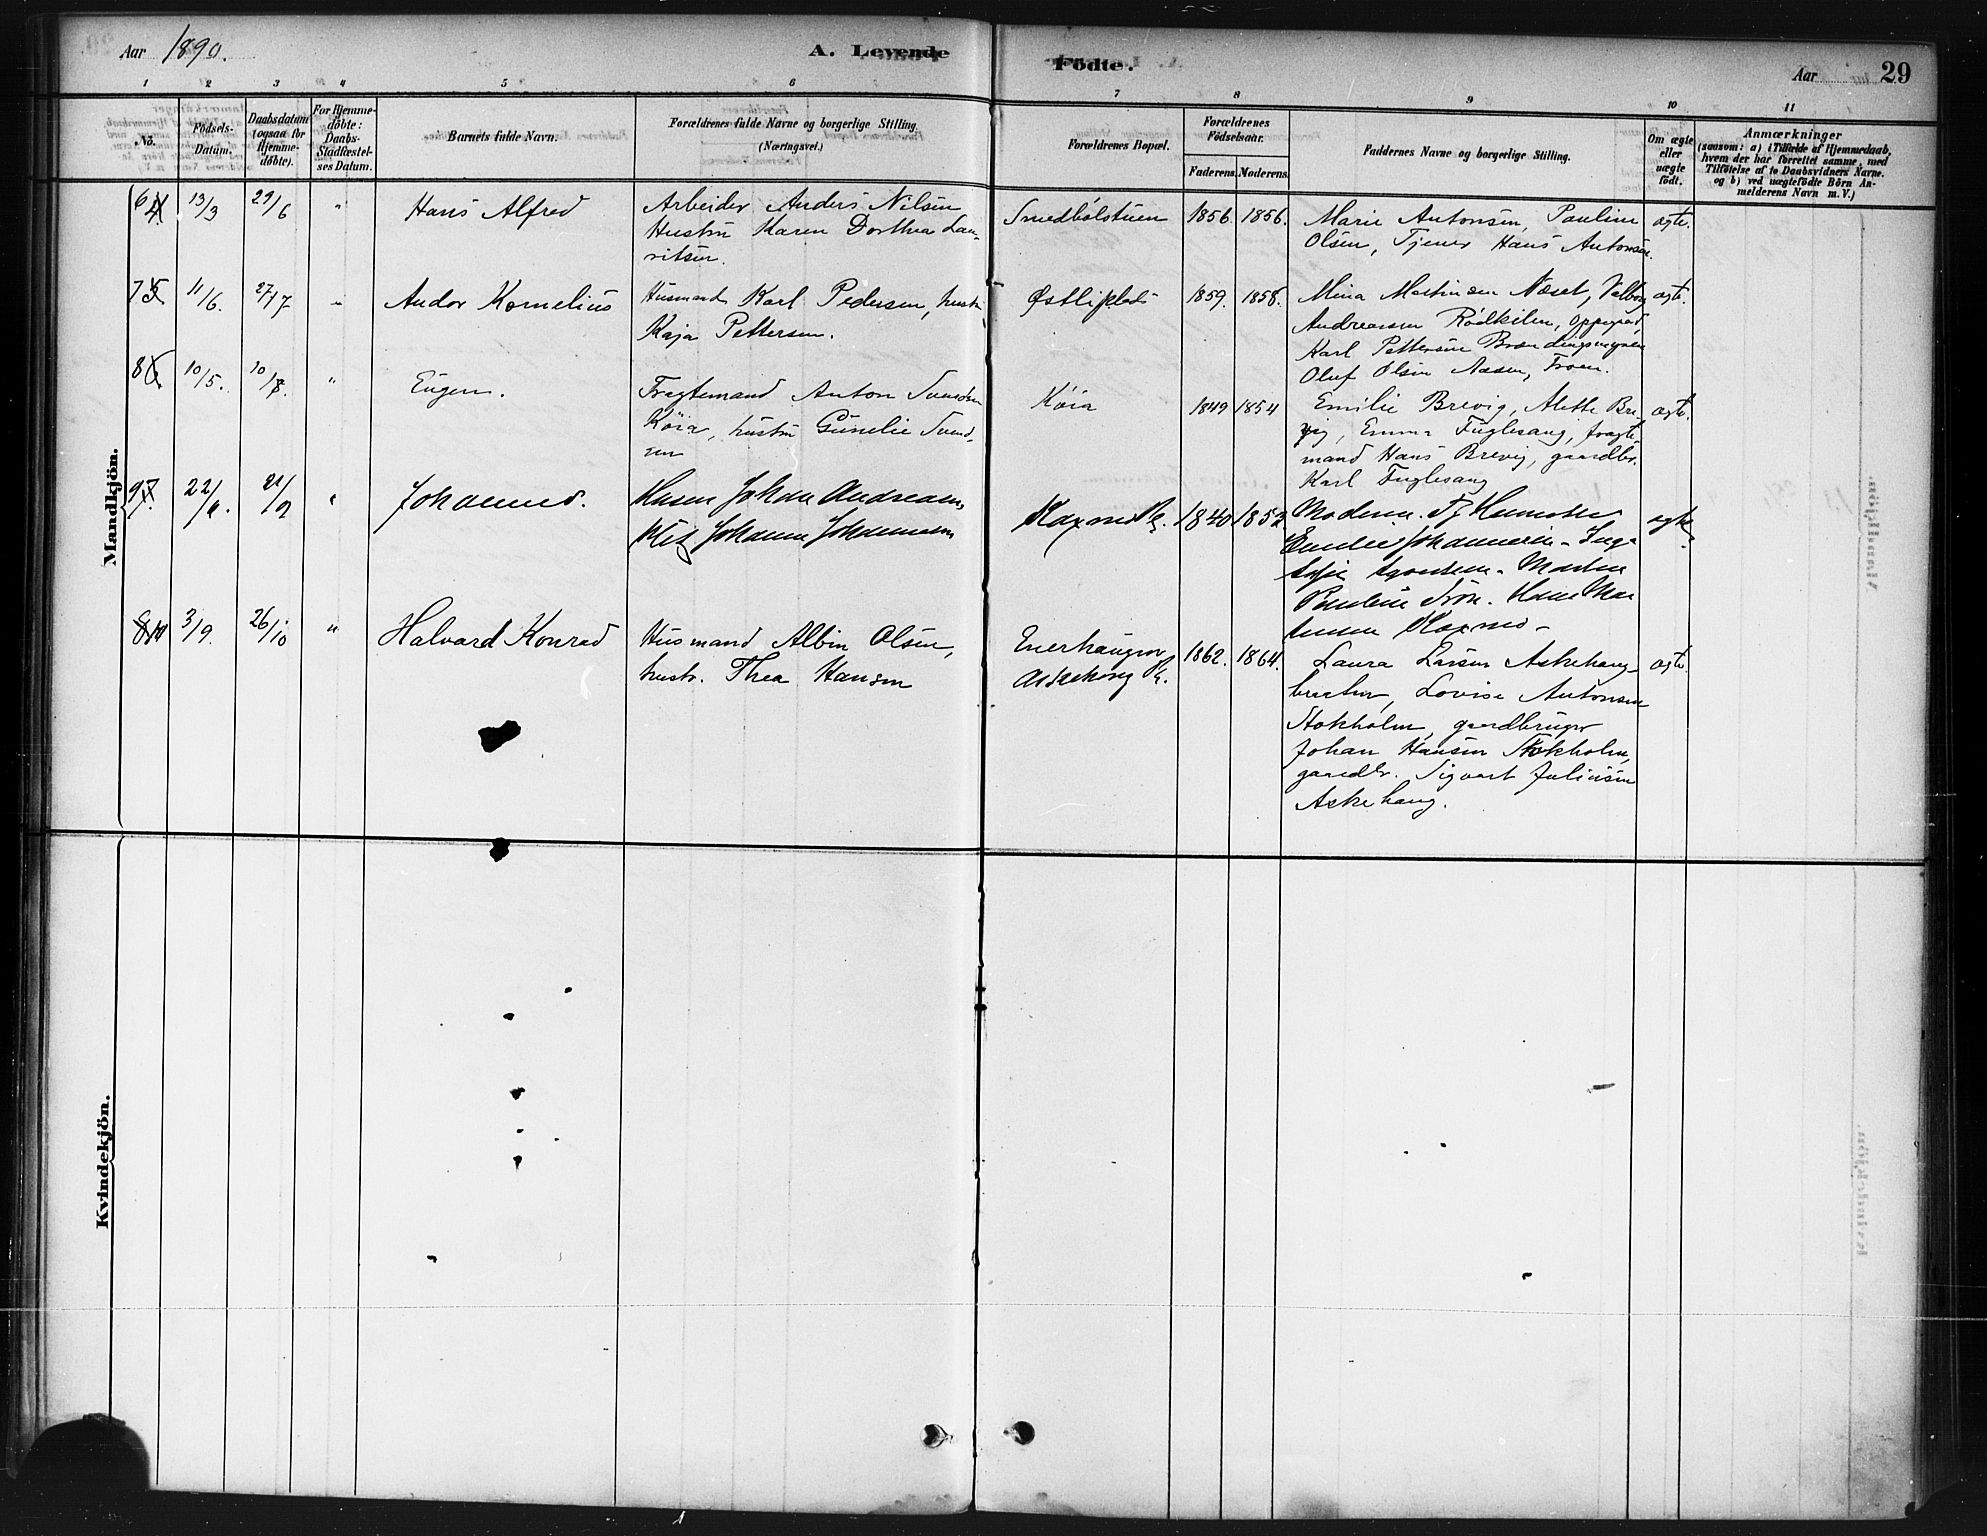 Aar 1890.
A. Levende
Fødte.
Aar
29
1 2 3 4 5 6 7 8 9 10 11
No.
Födsels-
Datum.
Daabsdatum
(ogsaa for
Hjemme-
döbte).
For Hjemme-
döbte:
Daabs-
Stadfæstel-
ses Datum.
Barnets fulde Navn.
Forældrenes fulde Navne og borgerlige Stilling.
(Næringsvei.)
Forældrenes Bopæl.
Forældrenes
Födselsaar.
Faderens. Moderens.
Faddernes Navne og borgerlige Stilling.
Om ægte
eller
uægte
födt.
Anmærkninger
(saasom: a) i Tilfælde af Hjemmedaab,
hvem der har forrettet samme, med
Tilföielse af to Daabsvidners Navne.
og b) ved uægtefödte Börn An-
melderens Navn m. V.)
Mandkjön.
6 4 13/3 29/6 " Hans Alfred
Arbeider Anders Nilsen
Hustru Karen Dorthea Lau-
ritsen.
Smedbölstuen 1856. 1856.
Marie Antonsen, Pauline
Olsen, Tjener Hans Antonsen.
ægte.
7 5 11/6. 27/7 " Andor Kornelius
Husmand Karl Pedersen, hustru
Kaja Pettersen.
Østliplads 1859. 1858.
Mina Martinsen Næset, Valborg
Andreassen Rödkilen, Oppegård,
Karl Pettersen
Oluf Olsen Næsen, Froen.
ægte.
8 6 10/5. 10/8. " Eugen.
Fragtemand Anton Svendsen
Köia, hustru Gunelie Svend-
sen
Köia 1849 1854
Emilie Brevig, Alette Bre-
vig, Emma Fuglesang, fragte-
mand Hans Brevig, gaardbr.
Karl Fuglesang
ægte.
9 7. 22/6. 21/9 " Johannes.
Husm Johan Andreasen,
Johanne Johannesen
1840 1852
Moderen.
Emilie Johannesen - Inga
Sofie - Martin
Pauline - Hans Mar
tinsen
ægte.
8 10 3/9. 26/10 " Halvard Konrad
Husmand Albin Olsen,
hustr. Thea Hansen
Enerhaugen
Askehaug Pl. 1862. 1864.
Laura Larsen Askehaug-
braaten, Lovise Antonsen
Stokholm, gaardbruger
Johan Hansen Stokholm,
gaardbr. Sigvart Juliusen
Askehaug.
ægte.
Kvindekjön.